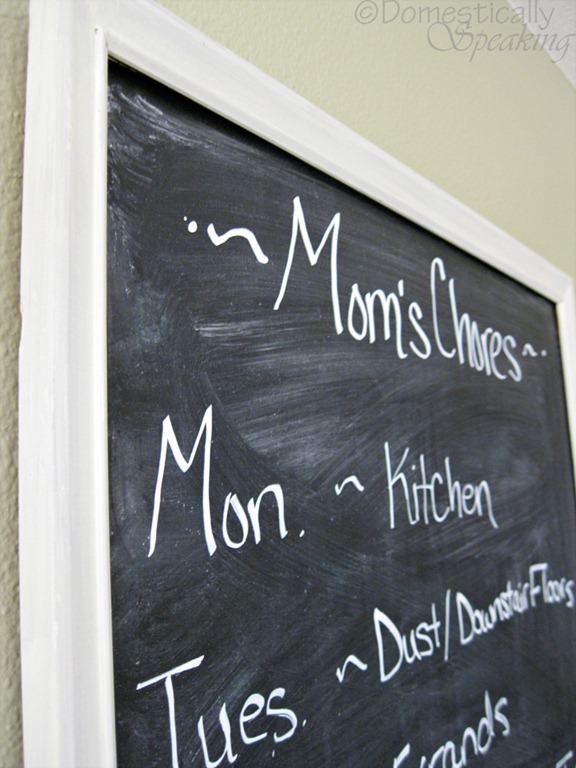 ©Domestically
Speaking
~ Mom's Chores ~
Mon. ~ Kitchen
Tues. ~ Dust/Downstair Floors
Errands